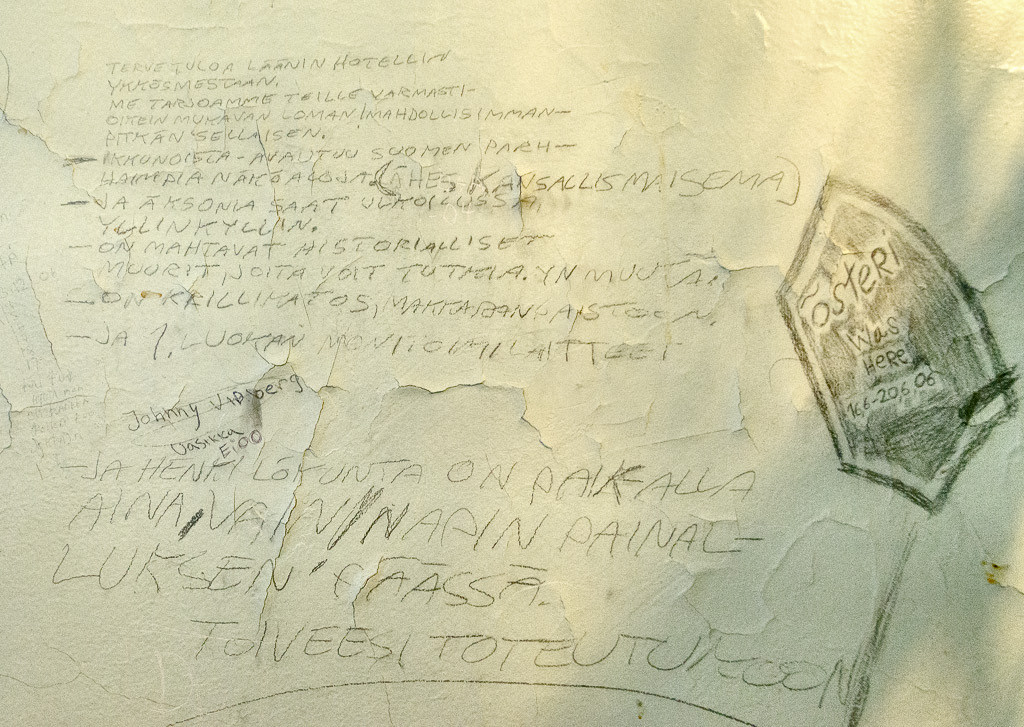 TERVETULOA LÄÄNIN HOTELLIN
YKKÖSMESTAAN.
ME TARJOAMME TEILLE VARMASTI-
OIKEIN MUKAVAN LOMAN/MAHDOLLISIMMAN-
PITKÄN SELLAISEN.
- IKKUNOISTA-AVAUTUU SUOMEN PARH-
HAIMPIA NÄKÖALOJA (LÄHES KANSALLISMAISEMA)
- JA AKSONIA SAAT ULKOILUSSA,
YLLINKYLLIN.
- ON MAHTAVAT HISTORIALLISET
MUURIT, JOITA VOIT TUTKIA. YM MUUTA.
- ON KRILLIKATOS, MAKKARANPAISTOON.
- JA 1. LUOKAN MONITOIMILAITTEET
Johnny
Vasikka
E100
- JA HENKILÖKUNTA ON PAIKALLA
AINA, VAIN/NAPIN PAINAL-
LUKSEN PÄÄSSÄ.
TOIVEESI TOTEUTUKOON
ROSTERI
Was
HERE
16.6-20.6.06